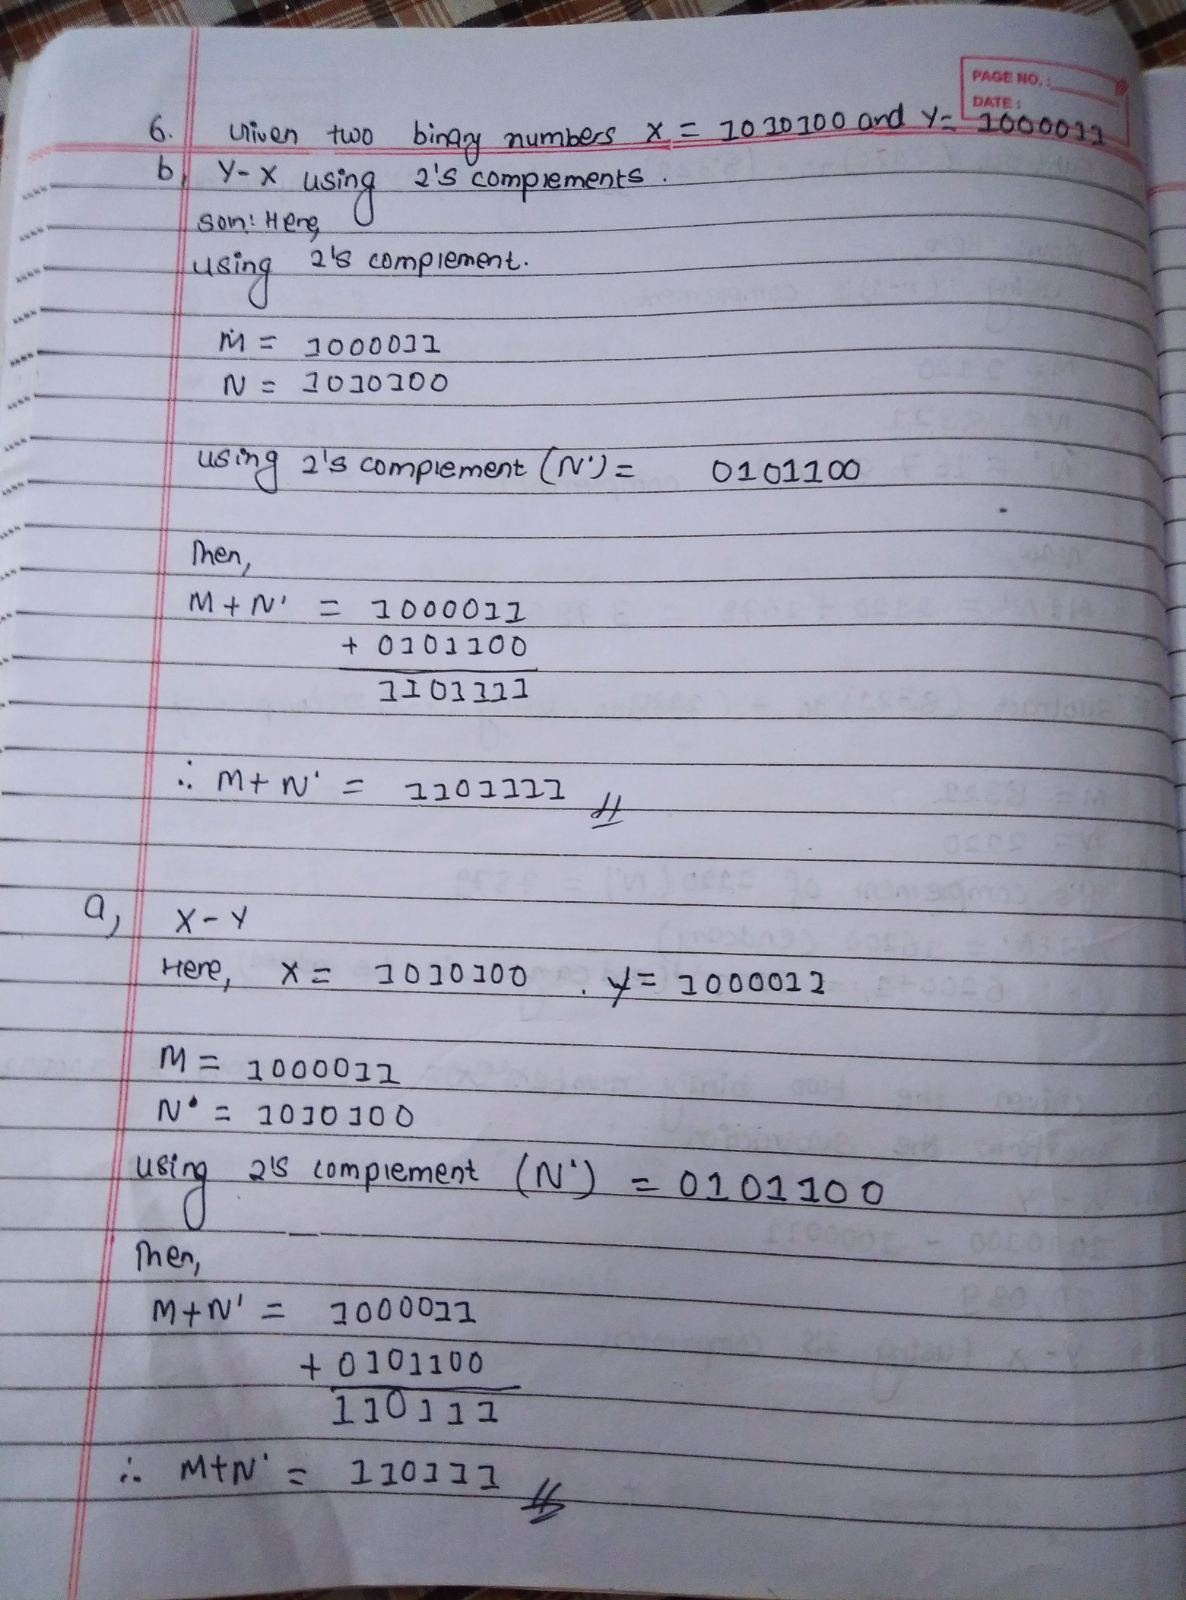 PAGE NO.:
DATE:
6. Given two binary numbers X = 1010100 and Y= 1000011
b, Y-X using 2's complements.
Soln: Here,
using 2's complement.
M = 1000011
N = 1010100
using 2's complement (N') = 0101100
Then,
M+N' = 1000011
+ 0101100
1101111
∴ M+N' = 1101111
a, X-Y
Here, X= 1010100 . Y= 1000011
M = 1000011
N = 1010100
using 2's complement (N') = 0101100
Then,
M+N' = 1000011
+ 0101100
110111
∴ M+N' = 110111